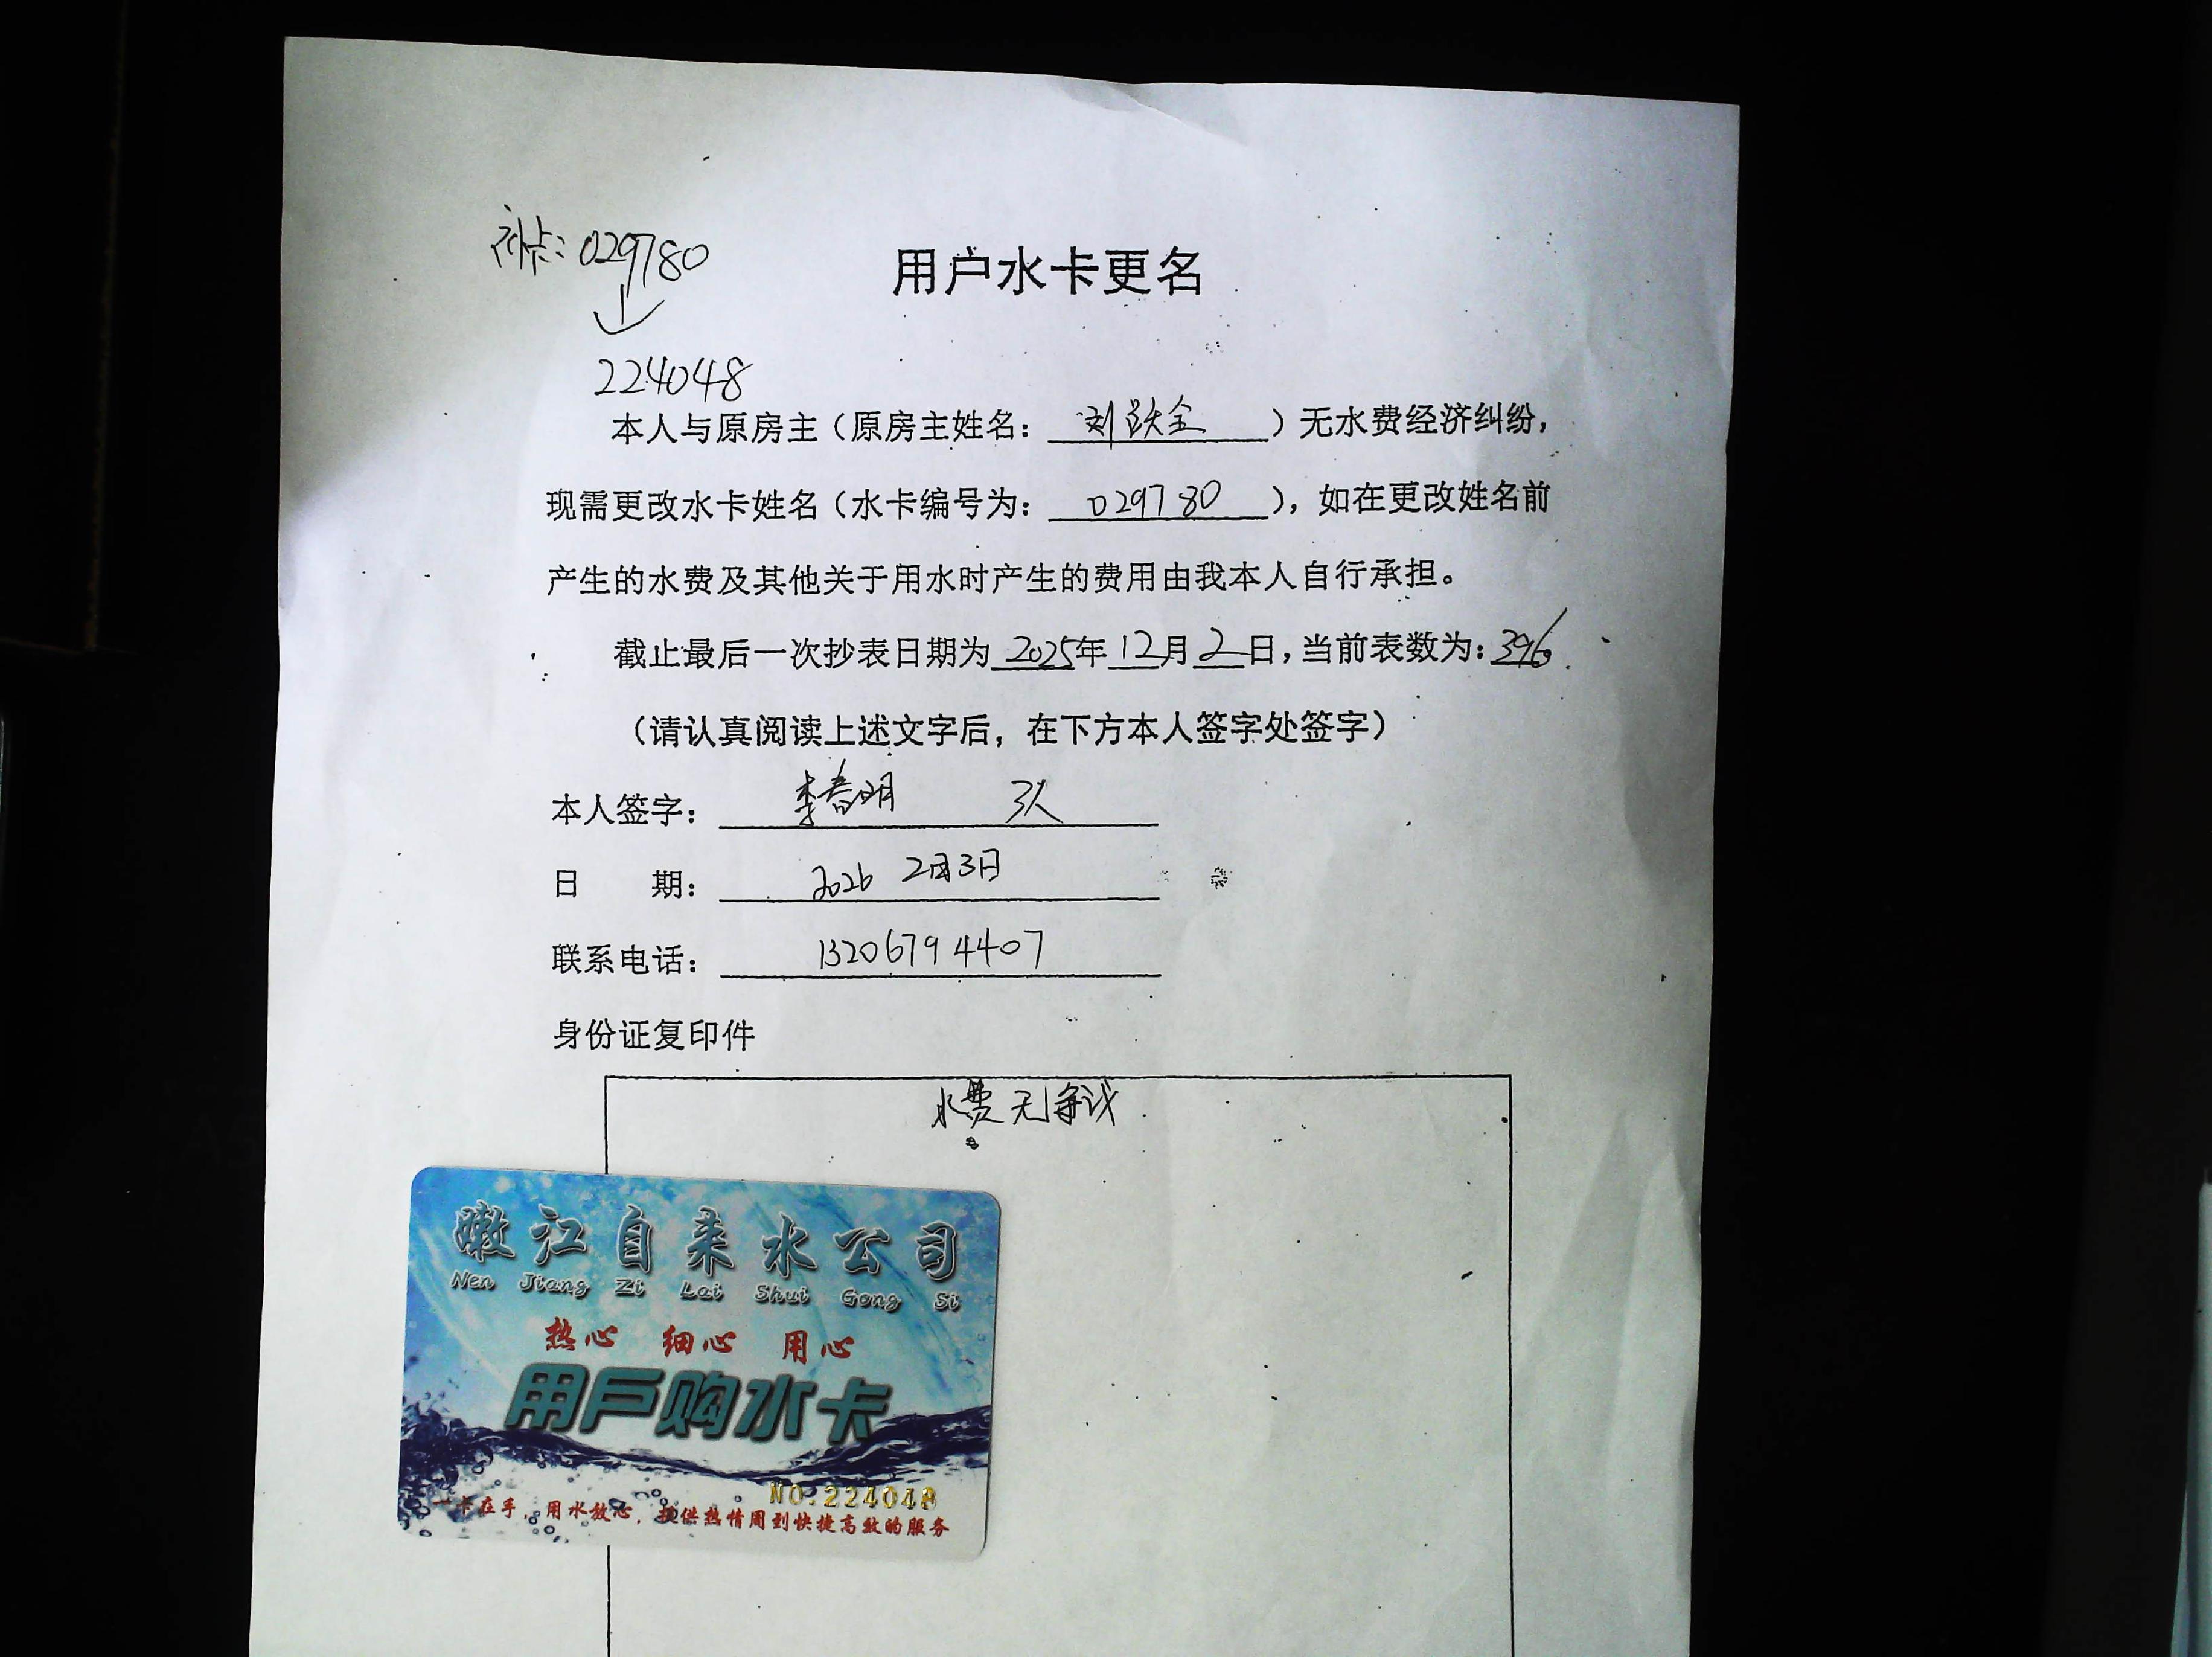 补卡：029780
224048
用户水卡更名
本人与原房主（原房主姓名：刘跃全）无水费经济纠纷，
现需更改水卡姓名（水卡编号为：029780），如在更改姓名前
产生的水费及其他关于用水时产生的费用由我本人自行承担。
截止最后一次抄表日期为2025年12月2日，当前表数为：396。
（请认真阅读上述文字后，在下方本人签字处签字）
本人签字：李春明 3人
日 期：2026 2月3日
联系电话：13206794407
身份证复印件
水费无争议
嫩江自来水公司
Nen Jiang Zi Lai Shui Gong Si
热心 细心 用心
用户购水卡
NO.224048
一卡在手，用水放心，提供热情周到快捷高效的服务